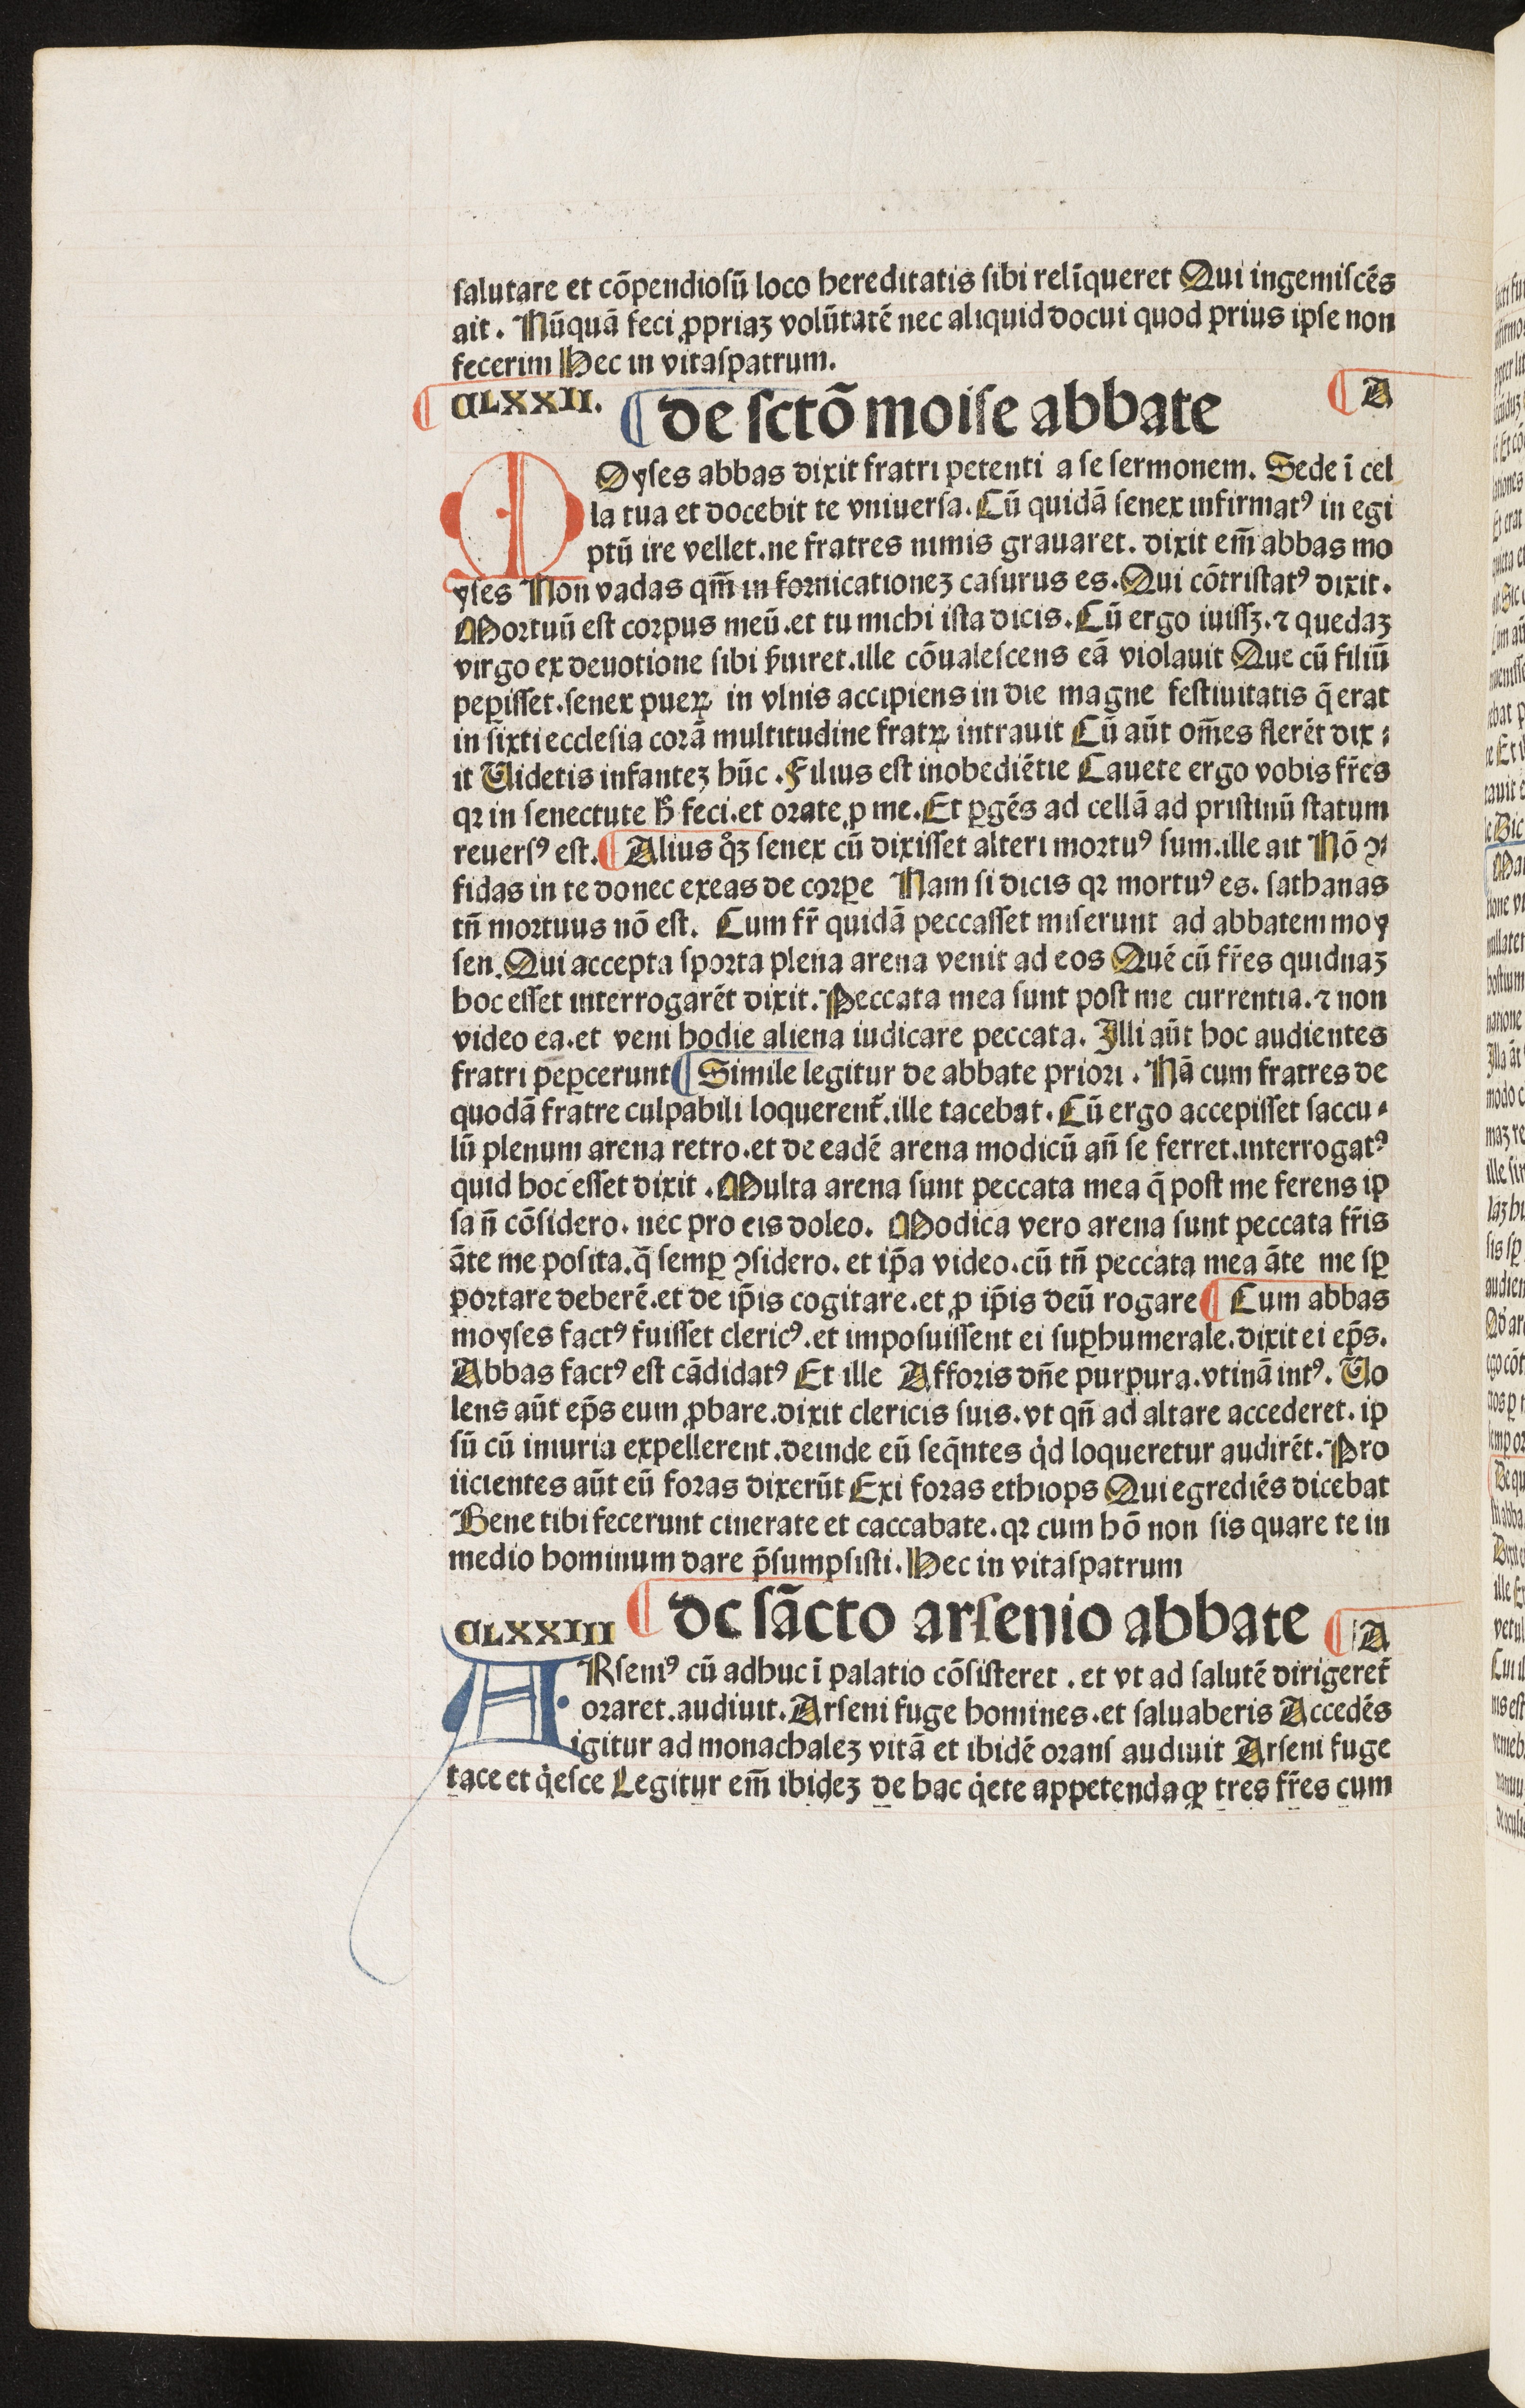 salutare et cōpendiosū loco hereditatis sibi relīqueret Qui ingemiscēs
ait. Nūquā feci ꝓpriaꝫ volūtatē nec aliquid docui quod prius ipse non
fecerim Hec in vitaspatrum.
CLXXII. ¶ de sctō moise abbate ¶ A
MOyses abbas dixit fratri petenti a se sermonem. Sede ī cel
la tua et docebit te vniuersa. Cū quidā senex infirmatꝰ in egi
ptū ire vellet.ne fratres nimis grauaret. dixit em̄ abbas mo
yses Non vadas qm̄ in fornicationeꝫ casurus es. Qui cōtristatꝰ dixit.
Mortuū est corpus meū.et tu michi ista dicis. Cū ergo iuissꝫ.⁊ quedaꝫ
virgo ex deuotione sibi ẜuiret.ille cōualescens eā violauit Que cū filiū
peꝑisset.senex pueꝝ in vlnis accipiens in die magne festiuitatis q̄ erat
in sixti ecclesia corā multitudine fratꝝ intrauit Cū aūt om̄es flerēt dix⸗
it Videtis infanteꝫ hūc. Filius est inobediētie Cauete ergo vobis fr̄es
qꝛ in senectute ħ feci.et orate ꝓ me. Et ꝑgēs ad cellā ad pristinū statum
reuersꝰ est. ¶ Alius qͦꝫ senex cū dixisset alteri mortuꝰ sum.ille ait Nō ꝯ⸗
fidas in te donec exeas de corꝑe Nam si dicis qꝛ mortuꝰ es. sathanas
tn̄ mortuus nō est. Cum fr̄ quidā peccasset miserunt ad abbatem moy
sen. Qui accepta sporta plena arena venit ad eos Quē cū fr̄es quidnaꝫ
hoc esset interrogarēt dixit. Peccata mea sunt post me currentia.⁊ non
video ea.et veni hodie aliena iudicare peccata. Illi aūt hoc audientes
fratri peꝑcerunt ¶ Simile legitur de abbate priori. Nā cum fratres de
quodā fratre culpabili loquerent̄.ille tacebat. Cū ergo accepisset saccu⸗
lū plenum arena retro.et de eadē arena modicū an̄ se ferret.interrogatꝰ
quid hoc esset dixit. Multa arena sunt peccata mea q̄ post me ferens ip
sa n̄ cōsidero. nec pro eis doleo. Modica vero arena sunt peccata fr̄is
āte me posita.q̄ semꝑ ꝯsidero. et ip̄a video.cū tn̄ peccata mea āte me sꝑ
portare deberē.et de ip̄is cogitare.et ꝓ ip̄is deū rogare ¶ Cum abbas
moyses factꝰ fuisset clericꝰ.et imposuissent ei suꝑhumerale.dixit ei ep̄s.
Abbas factꝰ est cādidatꝰ Et ille Afforis dn̄e purpura.vtinā intꝰ. Vo
lens aūt ep̄s eum ꝓbare.dixit clericis suis.vt qn̄ ad altare accederet.ip
sū cū iniuria expellerent.deinde eū seq̄ntes qͥd loqueretur audirēt. Pro
iicientes aūt eū foras dixerūt Exi foras ethiops Qui egrediēs dicebat
Bene tibi fecerunt cinerate et caccabate.qꝛ cum hō non sis quare te in
medio hominum dare p̄sumpsisti. Hec in vitaspatrum
CLXXIII ¶ de sācto arsenio abbate ¶ A
ARseniꝰ cū adhuc ī palatio cōsisteret. et vt ad salutē dirigeret̄
oraret.audiuit. Arseni fuge homines.et saluaberis Accedēs
igitur ad monachaleꝫ vitā et ibidē orans audiuit Arseni fuge
tace et qͥesce Legitur em̄ ibideꝫ de hac qͥete appetenda ꝙ tres fr̄es cum